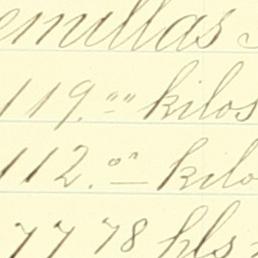 emillas
119."" kilos
112."" kilo
77 78 hls